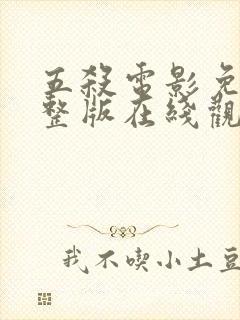 五殺電影免
整版在綫觀
我不喫小土豆